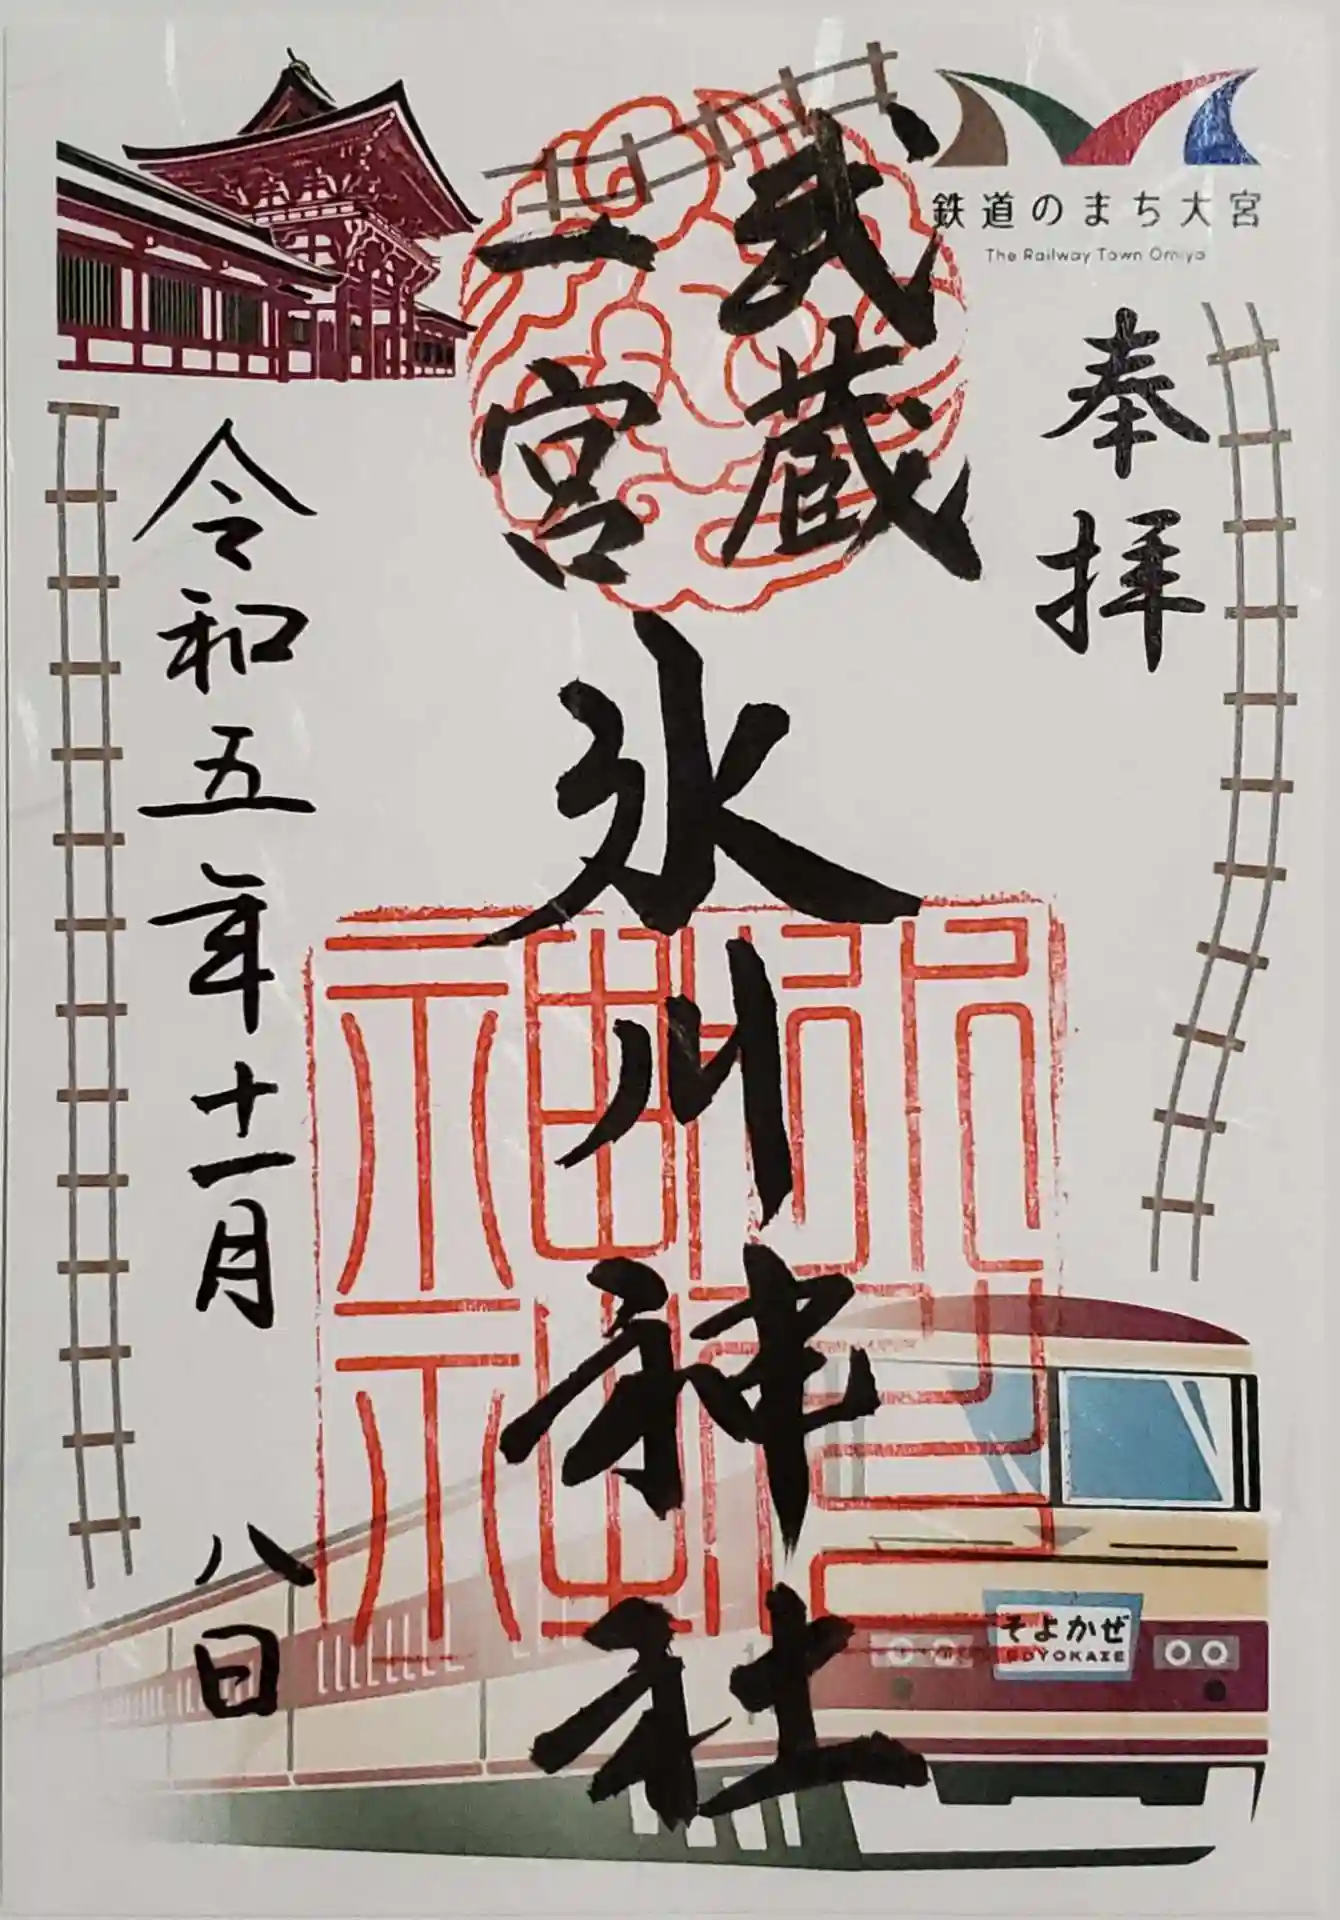 鉄道のまち大宮
The Railway Town Omiya
奉拝
武蔵
一宮
氷川神社
令和五年十一月八日
そよかぜ
SOYOKAZE